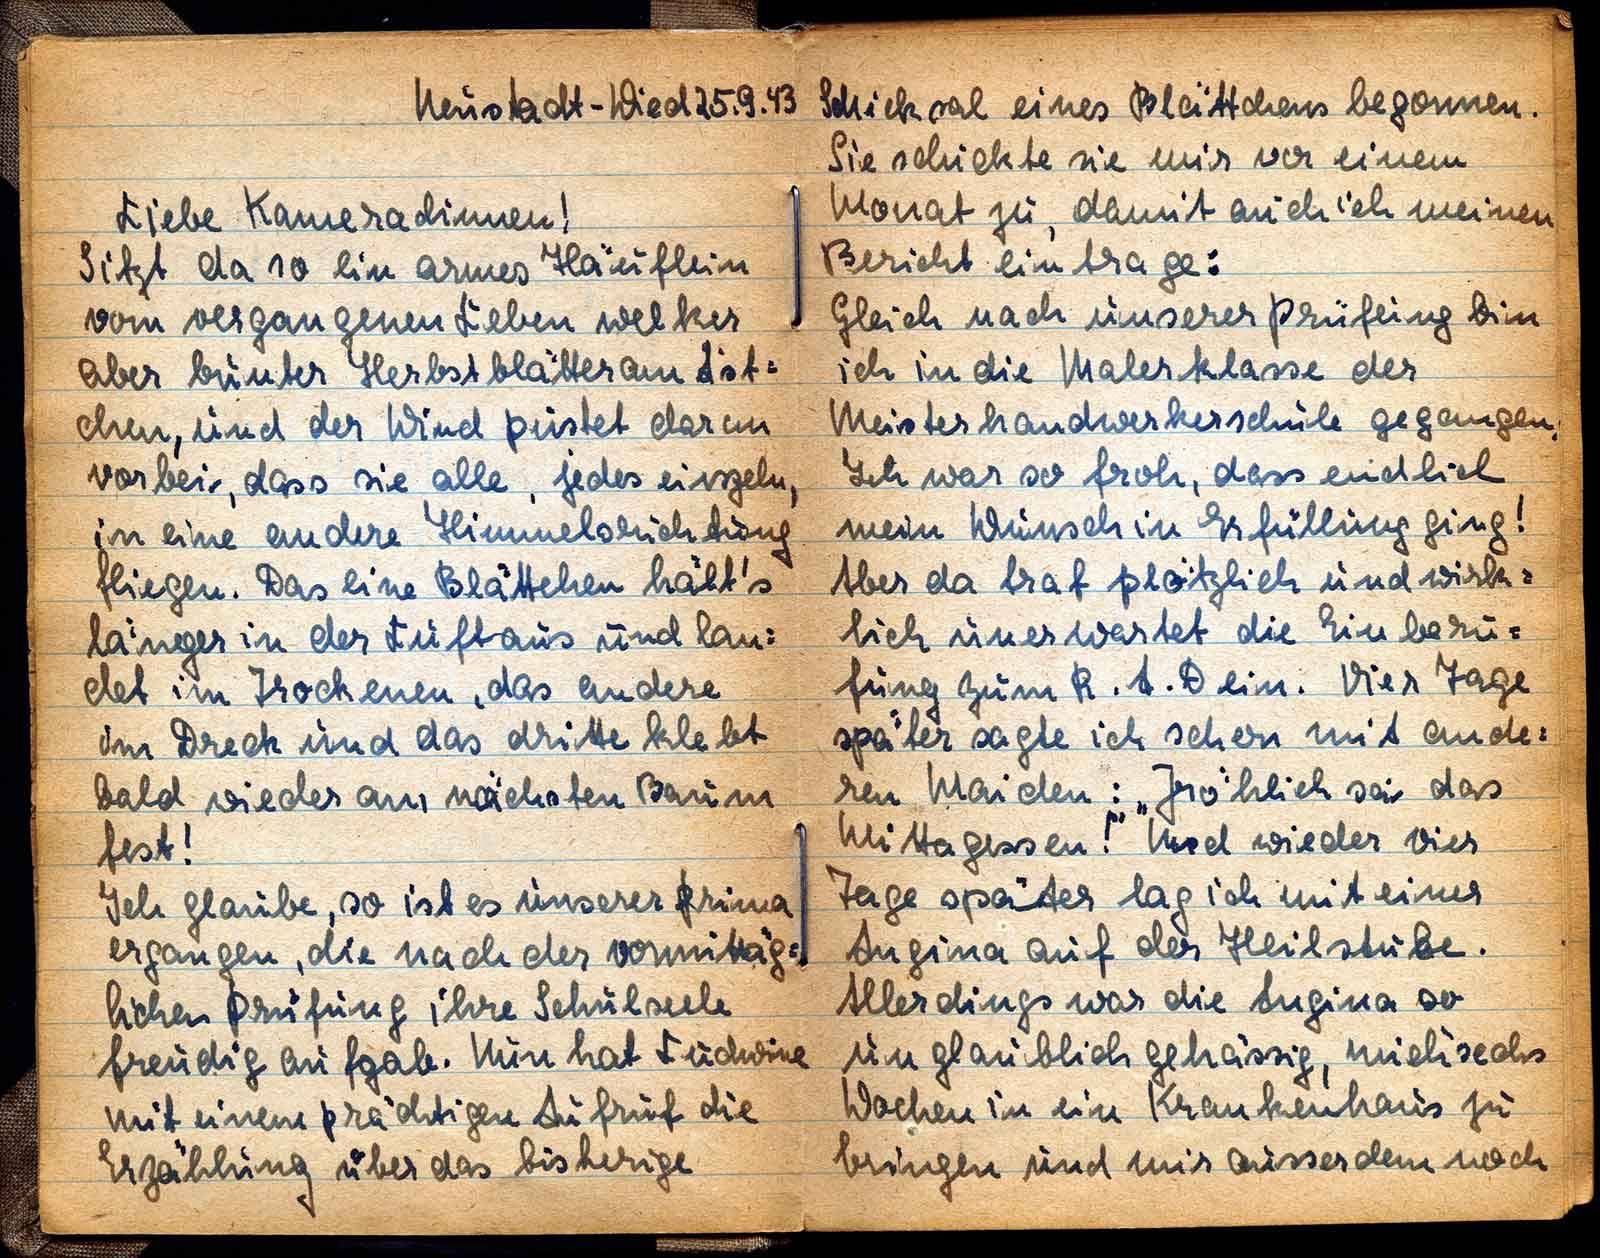 Neustadt-Wied 25.9.43
Liebe Kameradinnen!
Sitzt da so ein armes Häuflein
vom vergangenen Leben welker
aber bunter Herbstblätter am Äst=
chen, und der Wind pustet daran
vorbei, dass sie alle, jedes einzeln,
in eine andere Himmelsrichtung
fliegen. Das eine Blättchen hält's
länger in der Luft aus und lan=
det im Trockenen, das andere
im Dreck und das dritte klebt
bald wieder am nächsten Baum
fest!
Ich glaube, so ist es unserer Prima
ergangen, die nach der vormittäg=
lichen Prüfung ihre Schulseele
freudig aufgab. Nun hat Ludwine
mit einem prächtigen Aufruf die
Erzählung über das bisherige
Schicksal eines Blättchens begonnen.
Sie schickte sie mir vor einem
Monat zu, damit auch ich meinen
Bericht eintrage:
Gleich nach unserer Prüfung bin
ich in die Malerklasse der
Meisterhandwerkerschule gegangen.
Ich war so froh, dass endlich
mein Wunsch in Erfüllung ging!
Aber da traf plötzlich und wirk=
lich unerwartet die Einberu=
fung zum R.A.D ein. Vier Tage
später sagte ich schon mit ande=
ren Maiden: „Fröhlich sei das
Mittagessen!" Und wieder vier
Tage später lag ich mit einer
Angina auf der Heilstube.
Allerdings war die Angina so
unglaublich gehässig, mich sechs
Wochen in ein Krankenhaus zu
bringen und mir ausserdem noch